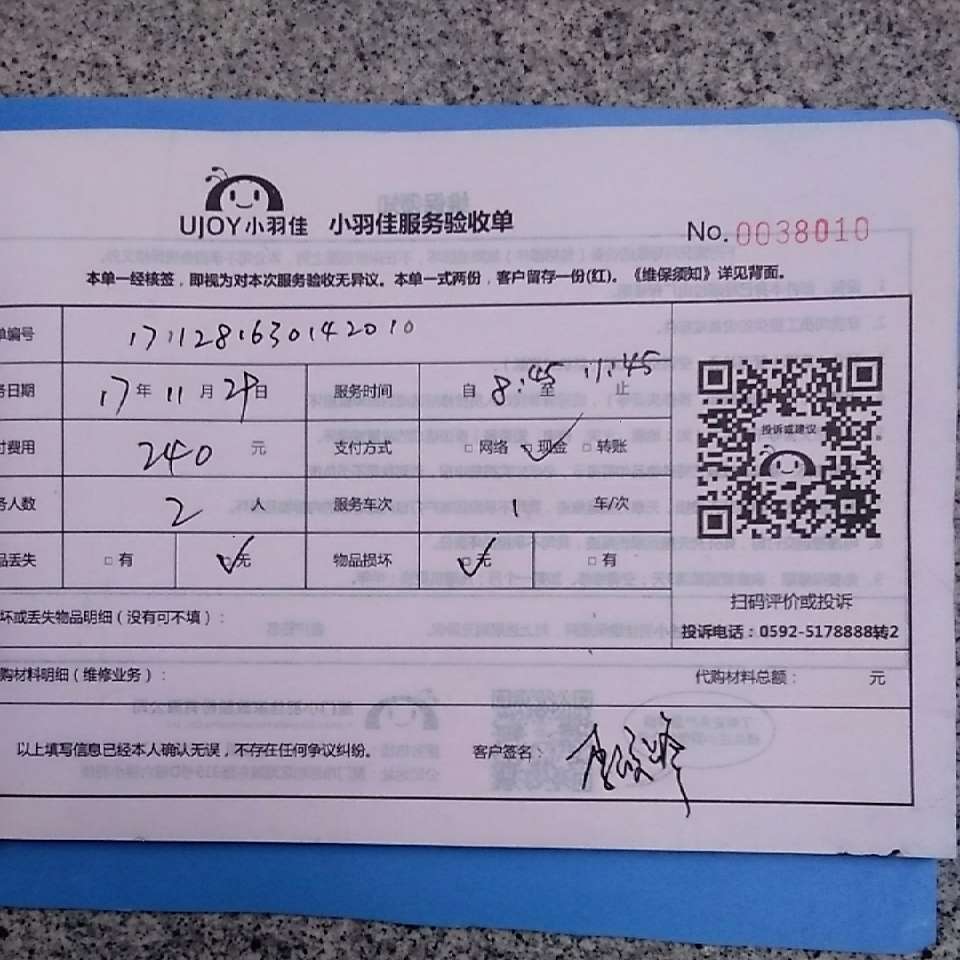 UJOY小羽佳 小羽佳服务验收单 No. 0038010
本单一经核签，即视为对本次服务验收无异议。本单一式两份，客户留存一份(红)。《维保须知》详见背面。
单编号 1711281630142010
务日期 17年 11月 29日 服务时间 自 8:45 至 11:45 止
付费用 240 元 支付方式 □网络 □现金 □转账
务人数 2 人 服务车次 1 车/次
品丢失 □有 □无 物品损坏 □无 □有
投诉或建议
扫码评价或投诉
投诉电话：0592-5178888转2
坏或丢失物品明细（没有可不填）：
购材料明细（维修业务）： 代购材料总额： 元
以上填写信息已经本人确认无误，不存在任何争议纠纷。 客户签名：